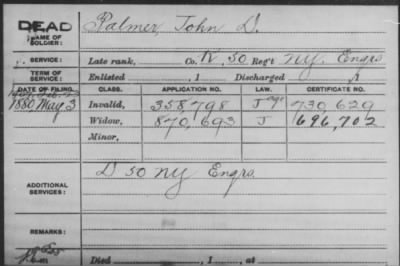 DEAD
NAME OF SOLDIER: Palmer, John D.
SERVICE: Late rank, Co. K, 50 Reg't NY. Engrs.
TERM OF SERVICE: Enlisted , 1 Discharged , 1
DATE OF FILING. CLASS. APPLICATION NO. LAW. CERTIFICATE NO.
1880, May 3 Invalid, 358798 J 730,629
Widow, 870,693 J 696,702
Minor,
ADDITIONAL SERVICES: D 50 NY Engrs.
REMARKS:
Died , 1 , at